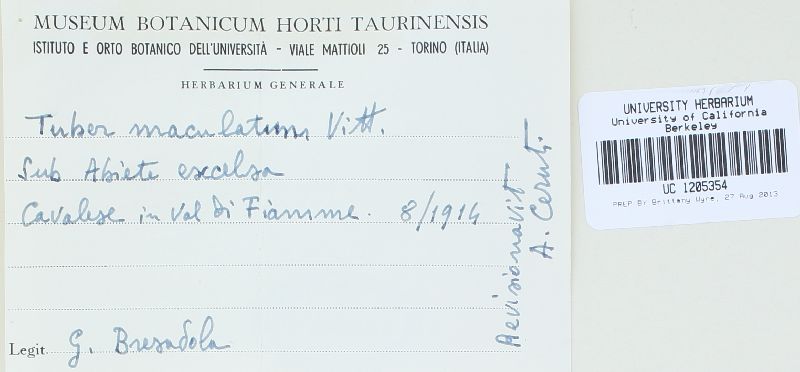 MUSEUM BOTANICUM HORTI TAURINENSIS
ISTITUTO E ORTO BOTANICO DELL'UNIVERSITÀ - VIALE MATTIOLI 25 - TORINO (ITALIA)
HERBARIUM GENERALE
Tuber maculatum Vitt.
Sub Abiete excelsa
Cavalese in Val di Fiamme. 8/1914
Legit. G. Bresadola
Revisionavit
A. Ceruti.
UNIVERSITY HERBARIUM
University of California
Berkeley
UC 1205354
PREP By Brittany Wyre, 27 Aug 2013